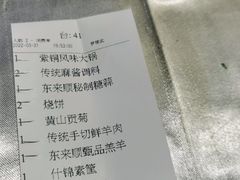 台: 41
2022-03-31 18:53:02
1 紫铜风味火锅
2 传统麻酱调料
1 东来顺秘制糖蒜
2 烧饼
1 黄山贡菊
1 传统手切鲜羊肉
1 东来顺甄品羔羊
1 什锦素筐